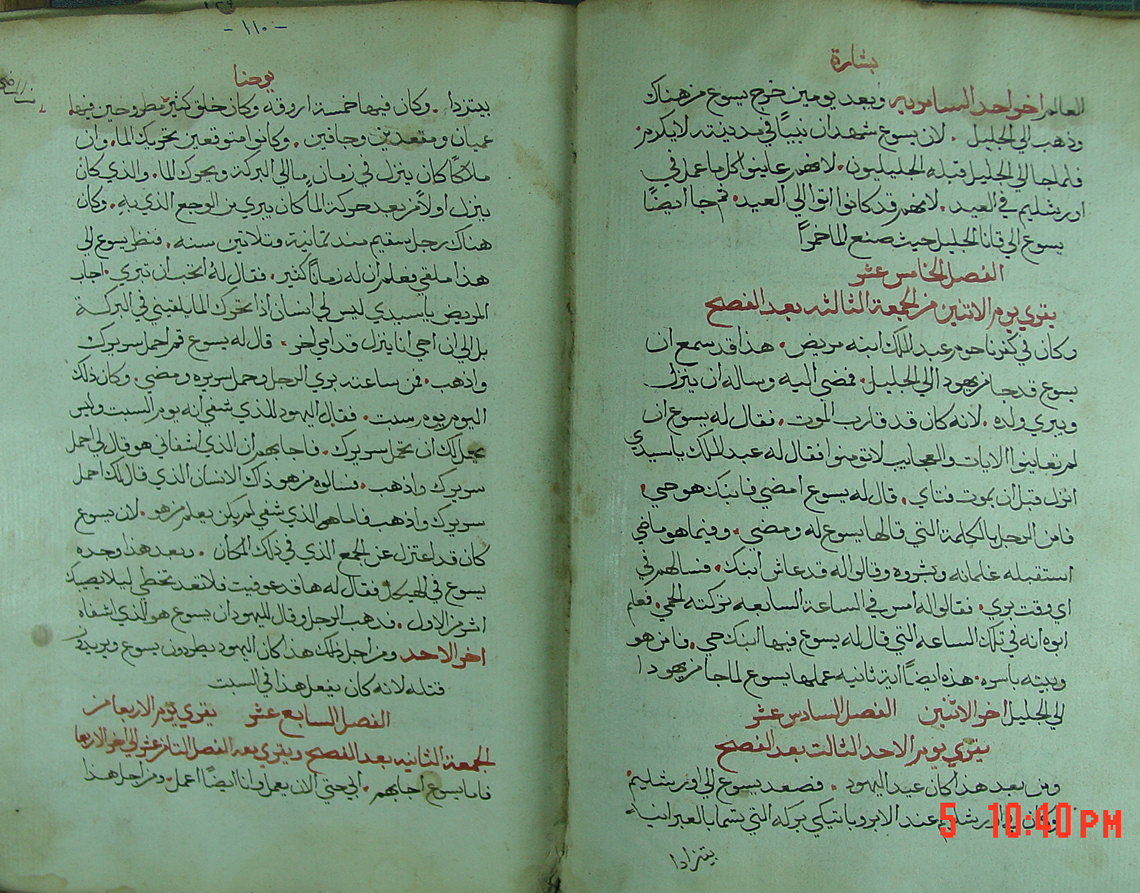 بشارة
العالم اخر احد السامريه وبعد يومين خرج يسوع من هناك
وذهب الي الجليل . لان يسوع شهد ان نبيا في مدينته لا يكرم
فلما جا الي الجليل قبله الجليليون . لانهم عاينوا كل ما عمل في
اورشليم في العيد . لانهم قد كانوا اتوا الي العيد . ثم جا ايضًا
يسوع الي قانا الجليل حيث صنع الما خمرًا
الفصل الخامس عشر
يقري يوم الاثنين من الجمعة الثالثه بعد الفصح
وكان في كفرناحوم عبد الملك ابنه مريض . هذا قد سمع ان
يسوع قد جا من يهودا الي الجليل . فمضي اليه وساله ان ينزل
ويبري ولده . لانه كان قد قارب الموت . فقال له يسوع ان
لم تعاينوا الايات والعجايب لا تومنوا فقال له عبد الملك يا سيدي
انزل قبل ان يموت فتاي . قال له يسوع امضي فابنك هو حي .
فامن الرجل بالكلمة التي قالها يسوع له ومضي . وفيما هو ماضي
استقبله غلمانه وبشروه وقالوا له قد عاش ابنك . فسالهم في
اي وقت بري . فقالوا له امس في الساعة السابعه تركته الحمي . فعلم
ابوه انه في تلك الساعه التي قال له يسوع فيها ابنك حي . فامن هو
وبيته باسره . هذه ايضًا اية ثانيه عملها يسوع لما جا من يهودا
الي الجليل اخر الاثنين الفصل السادس عشر
يقري يوم الاحد الثالث بعد الفصح
ومن بعد هذا كان عيد اليهود . فصعد يسوع الي اورشليم .
وكان في اورشليم عند الابروباتيكي بركه التي تسما بالعبرانية
بيتزدا
- ١١٠ -
يوحنا
بيتزدا . وكان فيها خمسة اروقه وكان خلق كثير مطروحين فيها
عميان ومقعدين وجافين . وكانوا متوقعين تحريك الما . وان
ملاكًا كان ينزل في زمانٍ ما الي البركة ويحرك الما . والذي كان
ينزل اولاً من بعد حركة الما كان يبري من الوجع الذي به . وكان
هناك رجل سقيم منذ ثمانية وثلاثين سنه . فنظر يسوع الي
هذا ملقي فعلم ان له زمانًا كثير . فقال له اتحب ان تبري . اجاب
المريض يا سيدي ليس لي انسان اذا تحرك الما يلقيني في البركة
بل الي ان اجي انا ينزل قدامي اخر . قال له يسوع قم احمل سريرك
واذهب . فمن ساعته بري الرجل وحمل سريره ومضي . وكان ذلك
اليوم يوم سبت . فقال اليهود للذي شفي انه يوم السبت وليس
يحل لك ان تحمل سريرك . فاجابهم ان الذي اشفاني هو قال لي احمل
سريرك واذهب . فسالوه من هو ذاك الانسان الذي قال لك احمل
سريرك واذهب فاما هو الذي شفي لم يكن يعلم من هو . لان يسوع
كان قد اعتزل عن الجمع الذي في ذلك المكان . وبعد هذا وجده
يسوع في الهيكل فقال له ها قد عوفيت فلا تعد تخطي ليلا يصيبك
اشر من الاول . فذهب الرجل وقال لليهود ان يسوع هو الذي اشفاه
اخر الاحد ومن اجل ذلك هذا كان اليهود يطردون يسوع ويريدو
قتله لانه كان يفعل هذا في السبت
الفصل السابع عشر يقري يوم الاربعا من
الجمعة الثانيه بعد الفصح ويقري بعد الفصل الثامن عشر الي اخر الاربعا
فاما يسوع اجابهم . ابي حتي الان يعمل وانا ايضًا اعمل . ومن اجل هذا
5 10:40 PM